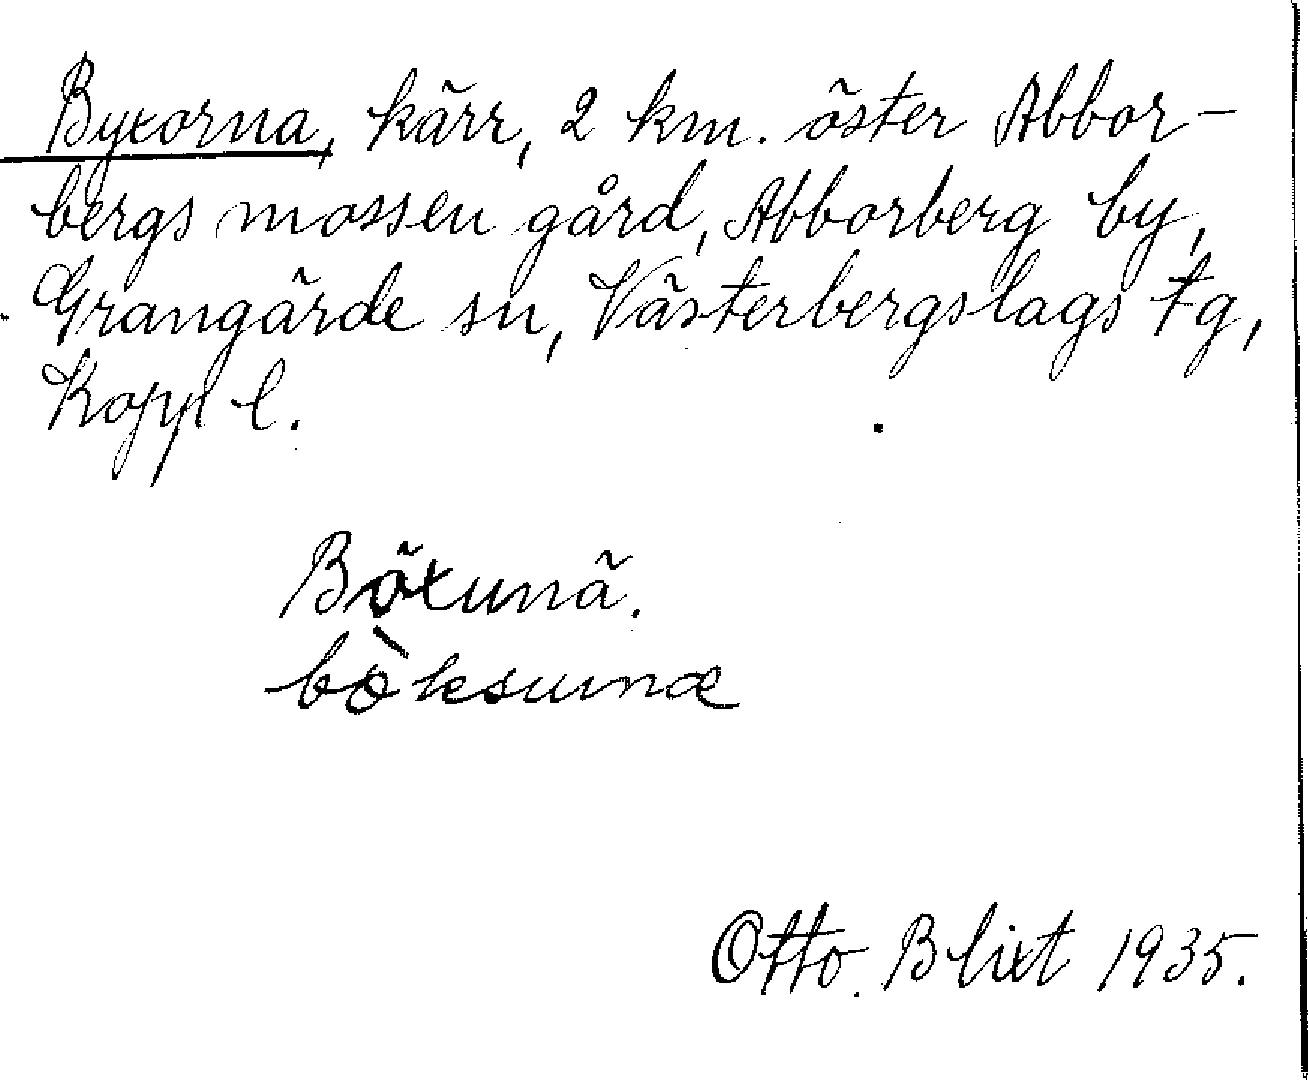 Byxorna, kärr, 2 km. öster Abbor-
bergs mossen gård, Abborberg by,
Grangärde sn, Västerbergslags tg,
Kopp l.
Böxunä.
bòksunæ
Otto. Blixt 1935.